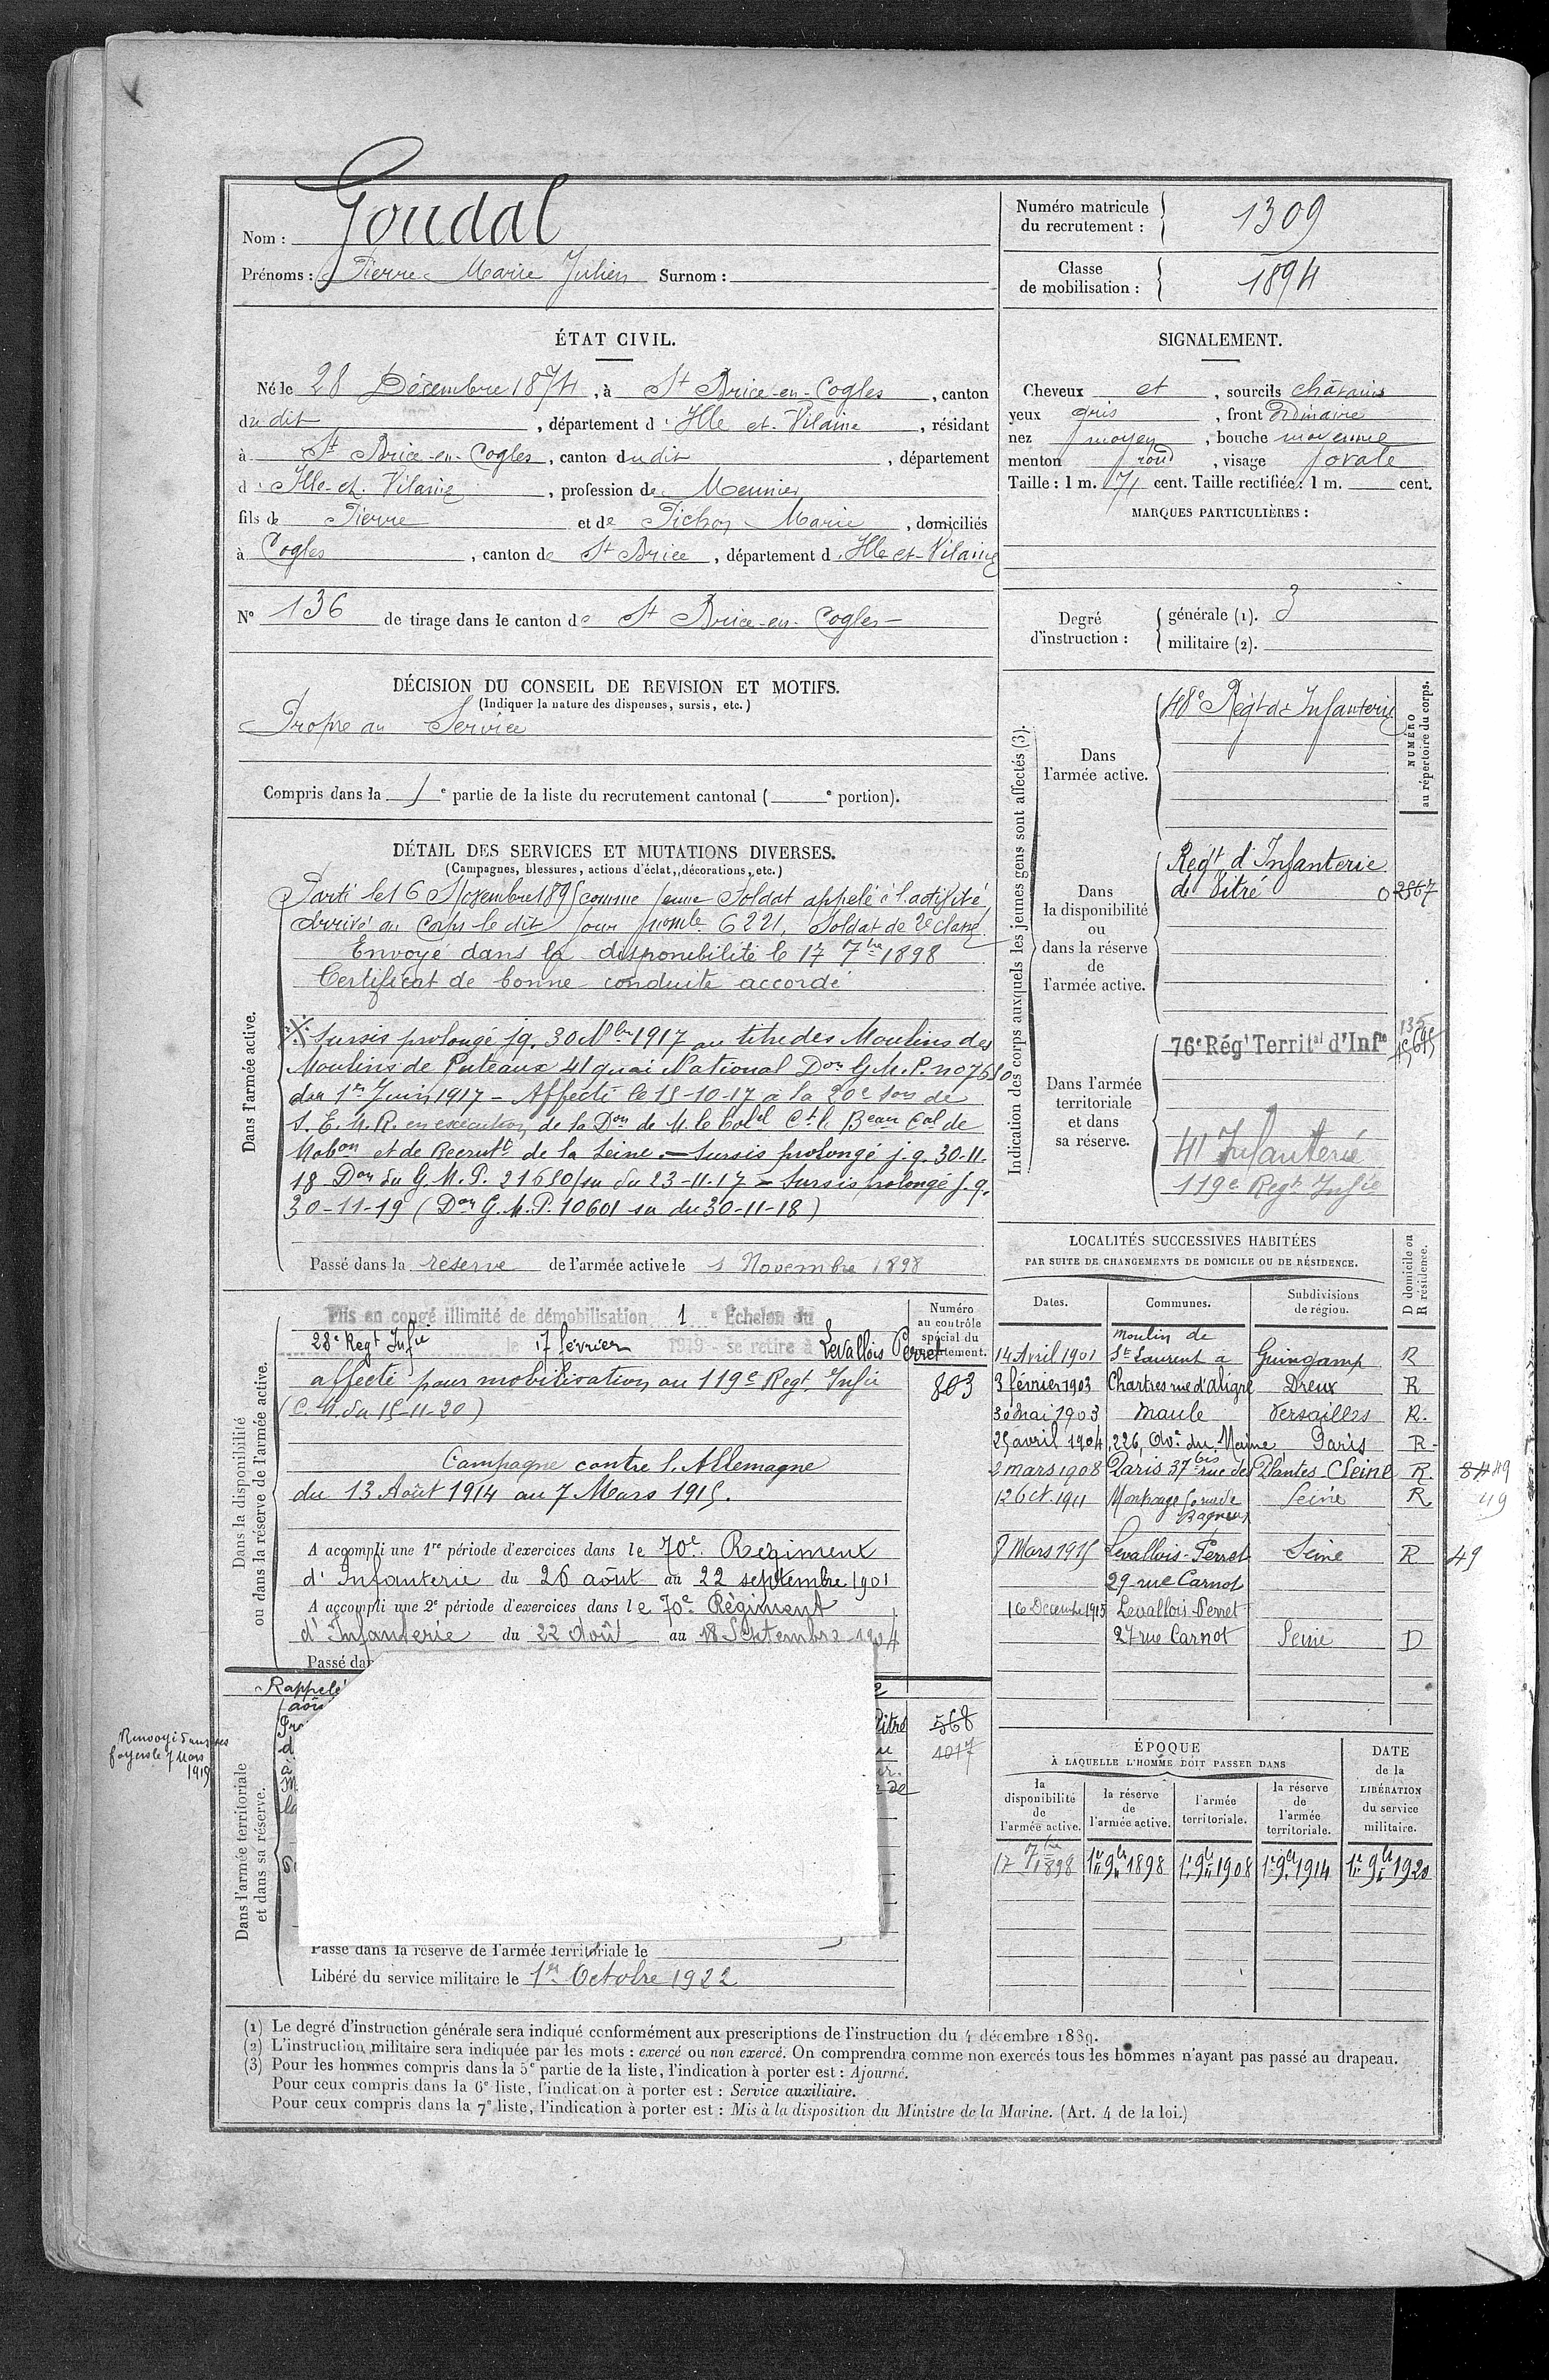 Nom : Goudal
Prénoms : Pierre Marie Julien Surnom :
Numéro matricule du recrutement : 1309
Classe de mobilisation : 1894
ÉTAT CIVIL.
Né le 28 Décembre 1874, à St Brice-en-Cogles, canton
du dit, département d'Ille et-Vilaine, résidant
à St Brice-en-Cogles, canton dudit, département
d'Ille-et-Vilaine, profession de Meunier
fils de Pierre et de Pichon Marie, domiciliés
à Cogles, canton de St Brice, département d'Ille et-Vilaine
N° 136 de tirage dans le canton de St Brice-en-Cogles
SIGNALEMENT.
Cheveux et, sourcils châtains
yeux gris, front ordinaire
nez moyen, bouche moyenne
menton rond, visage ovale
Taille : 1 m. 71 cent. Taille rectifiée : 1 m. cent.
MARQUES PARTICULIÈRES :
Degré d'instruction :
générale (1). 3
militaire (2).
DÉCISION DU CONSEIL DE REVISION ET MOTIFS.
(Indiquer la nature des dispenses, sursis, etc.)
Propre au Service
Compris dans la 1e partie de la liste du recrutement cantonal ( e portion).
DÉTAIL DES SERVICES ET MUTATIONS DIVERSES.
(Campagnes, blessures, actions d'éclat, décorations, etc.)
Dans l'armée active.
Parti le 16 Novembre 1895 comme jeune Soldat appelé à l'activité
Arrivé au Corps le dit jour 6221, Soldat de 2e classe.
Envoyé dans la disponibilité le 17 7bre 1898
Certificat de bonne conduite accordé
Sursis prolongé jq. 30 Nbre 1917 au titre des Moulins des
Moulins de Puteaux 41 quai National Don G.M.P. no 7610
du 1er Juin 1917 - Affecté le 15-10-17 à la 20e Son de
S. E. M. R. en exécution de la Don de M. le Colel Ct le Beau Cal de
Mobon et de Recrutt de la Seine. - Sursis prolongé j.q. 30-11.
18 Don du G.M.P. 21680/su du 23-11-17 - Sursis prolongé j.q.
30-11-19 (Don G.M.P. 10601 su du 30-11-18)
Passé dans la réserve de l'armée active le 1 Novembre 1898
Indication des corps auxquels les jeunes gens sont affectés (3).
NUMÉRO au répertoire du corps.
Dans l'armée active.
48e Régt d'Infanterie
Dans la disponibilité ou dans la réserve de l'armée active.
Régt d'Infanterie
de Vitré 0 2867
Dans l'armée territoriale et dans sa réserve.
76e Régt Territal d'Infie
41 Infanterie
119e Regt Infie
Dans la disponibilité ou dans la réserve de l'armée active.
Numéro au contrôle spécial du
803
Mis en congé illimité de démobilisation 1e Echelon du
28e Regt Infie le 17 février 1919 - se retire à Levallois Perret
affecté pour mobilisation au 119e Regt Infie
(C.M. du 15-11-20)
Campagne contre l'Allemagne
du 13 Août 1914 au 7 Mars 1915.
A accompli une 1re période d'exercices dans le 70e Régiment
d'Infanterie du 26 août au 22 septembre 1901
A accompli une 2e période d'exercices dans le 70e Régiment
d'Infanterie du 22 Août au 18 Septembre 1904
Passé dan
Rappelé
Renvoyé dans ses
foyers le 7 Mars
1915
Dans l'armée territoriale et dans sa réserve.
568
4017
Passé dans la réserve de l'armée territoriale le
Libéré du service militaire le 1er Octobre 1922
LOCALITÉS SUCCESSIVES HABITÉES
PAR SUITE DE CHANGEMENTS DE DOMICILE OU DE RÉSIDENCE.
Dates. Communes. Subdivisions de région. D domicile ou R résidence.
14 Avril 1901 Moulin de St Laurent a Guingamp R
3 février 1903 Chartres rue d'Aligre Dreux R
30 Mai 1903 Maule Versailles R.
25 avril 1904 226, Ave du Maine Paris R
2 mars 1908 Paris 37 bis rue des Plantes (Seine R.
12 Oct. 1911 Seine R
8 Mars 1915 Levallois-Perret Seine R 49
29 rue Carnot
16 Décembre 1915 Levallois-Perret
27 rue Carnot Seine D
ÉPOQUE
À LAQUELLE L'HOMME DOIT PASSER DANS
la disponibilité de l'armée active. la réserve de l'armée active. l'armée territoriale. la réserve de l'armée territoriale.
DATE de la LIBÉRATION du service militaire.
17 7bre 1898 1er 9bre 1898 1er 9bre 1908 1er 9bre 1914 1er 9bre 1920
(1) Le degré d'instruction générale sera indiqué conformément aux prescriptions de l'instruction du 4 décembre 1889.
(2) L'instruction militaire sera indiquée par les mots : exercé ou non exercé. On comprendra comme non exercés tous les hommes n'ayant pas passé au drapeau.
(3) Pour les hommes compris dans la 5e partie de la liste, l'indication à porter est : Ajourné.
Pour ceux compris dans la 6e liste, l'indication à porter est : Service auxiliaire.
Pour ceux compris dans la 7e liste, l'indication à porter est : Mis à la disposition du Ministre de la Marine. (Art. 4 de la loi.)